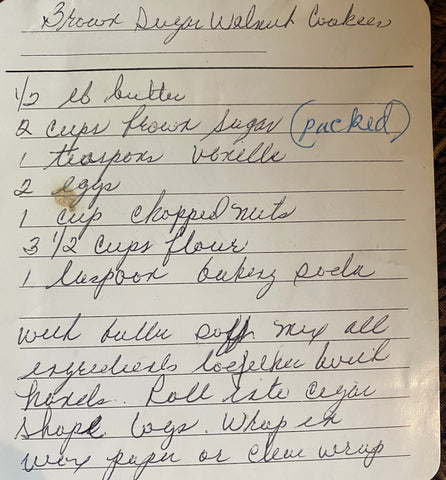 Brown Sugar Walnut Cookies
1/2 lb butter
2 cups brown sugar (packed)
1 teaspons vanilla
2 eggs
1 cup chopped nuts
3 1/2 cups flour
1 teaspoon baking soda
with butter soft mix all
ingredients together with
hands. Roll into cigar
shape logs. Wrap in
wax paper or clear wrap